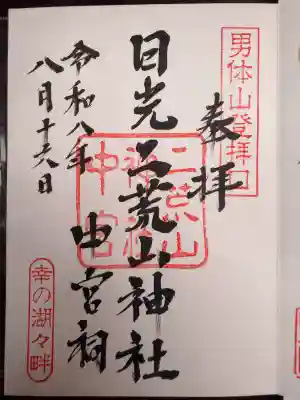 男体山登拝口
奉拝
日光二荒山神社
中宮祠
二荒山
神社
中宮
令和八年
八月十六日
幸の湖々畔